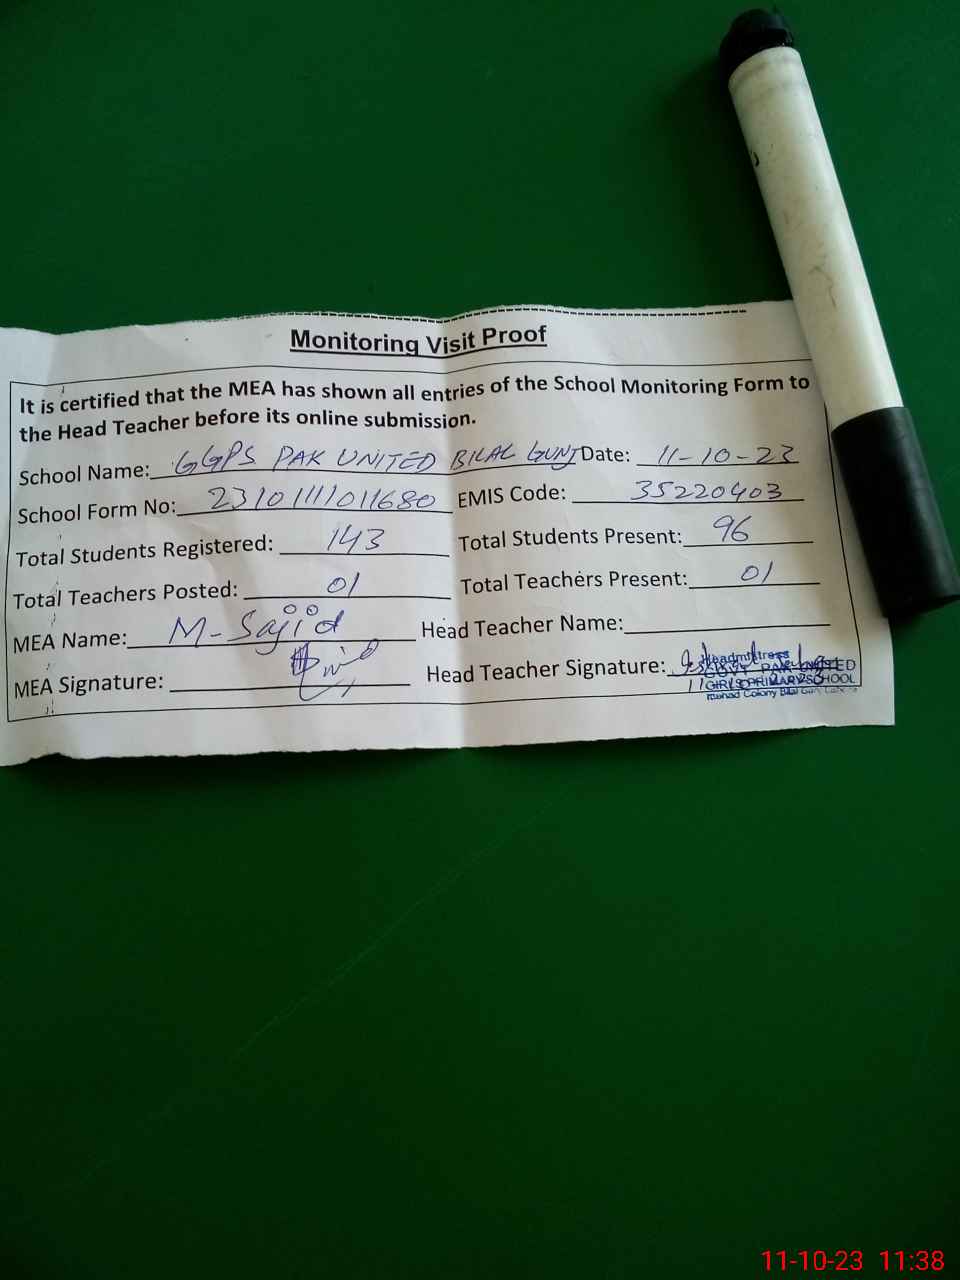 Monitoring Visit Proof
It is certified that the MEA has shown all entries of the School Monitoring Form to
the Head Teacher before its online submission.
School Name: GGPS PAK UNITED BILAL GUNJ Date: 11-10-23
School Form No: 23101111011680 EMIS Code: 35220403
Total Students Registered: 143 Total Students Present: 96
Total Teachers Posted: 01 Total Teachers Present: 01
MEA Name: M-Sajid Head Teacher Name:
MEA Signature: Head Teacher Signature:
Headmistress
GOVT. PAK UNITED
GIRLS PRIMARY SCHOOL
Colony Bilal Gunj
11-10-23 11:38